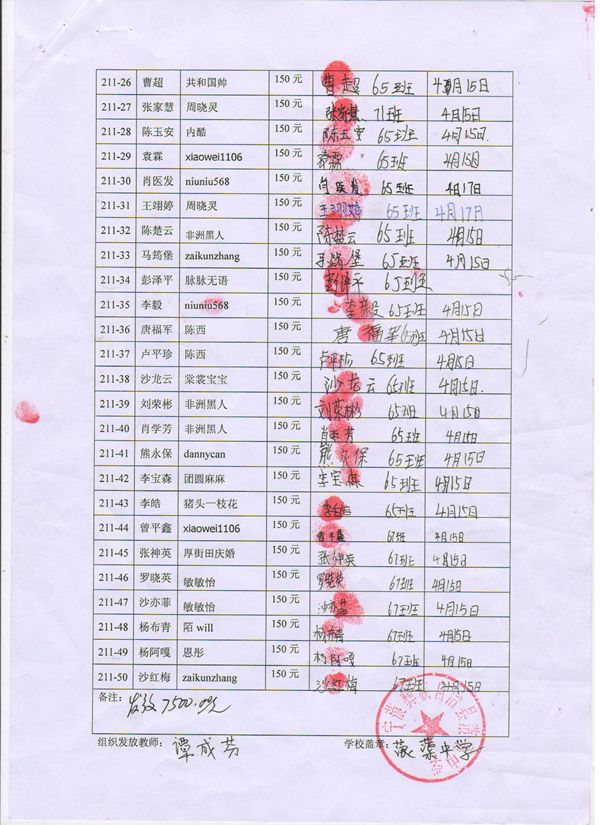 211-26 曹超 共和国帅 150元 曹超 65班 4月15日
211-27 张家慧 周晓灵 150元 张家慧 71班 4月15日
211-28 陈玉安 内酷 150元 陈玉安 65班 4月15日
211-29 袁霖 xiaowei1106 150元 袁霖 65班 4月15日
211-30 肖医发 niuniu568 150元 肖医发 65班 4月17日
211-31 王翊婷 周晓灵 150元 王翊婷 65班 4月17日
211-32 陈楚云 非洲黑人 150元 陈楚云 65班 4月15日
211-33 马筠堡 zaikunzhang 150元 马筠堡 65班 4月15日
211-34 彭泽平 脉脉无语 150元 彭泽平 65班
211-35 李毅 niuniu568 150元 李毅 65班 4月15日
211-36 唐福军 陈西 150元 唐福军 65班 4月15日
211-37 卢平珍 陈西 150元 卢平珍 65班 4月15日
211-38 沙龙云 棠裳宝宝 150元 沙龙云 65班 4月15日.
211-39 刘荣彬 非洲黑人 150元 刘荣彬 65班 4月15日
211-40 肖学芳 非洲黑人 150元 肖学芳 65班 4月15日
211-41 熊永保 dannycan 150元 熊永保 65班 4月15日
211-42 李宝森 团圆麻麻 150元 李宝森 65班 4月15日
211-43 李皓 猪头一枝花 150元 李皓 65班 4月15日
211-44 曾平鑫 xiaowei1106 150元 曾平鑫 67班 4月15日
211-45 张神英 厚街田庆婚 150元 张神英 67班 4月15日
211-46 罗晓英 敏敏怡 150元 罗晓英 67班 4月15日
211-47 沙亦菲 敏敏怡 150元 沙亦菲 67班 4月15日
211-48 杨布青 陌will 150元 杨布青 67班 4月15日
211-49 杨阿嘎 恩彤 150元 杨阿嘎 67班 4月15日
211-50 沙红梅 zaikunzhang 150元 沙红梅 67班 4月15日
备注: 发放7500.0元
组织发放教师: 谭成芬 学校盖章: 中学